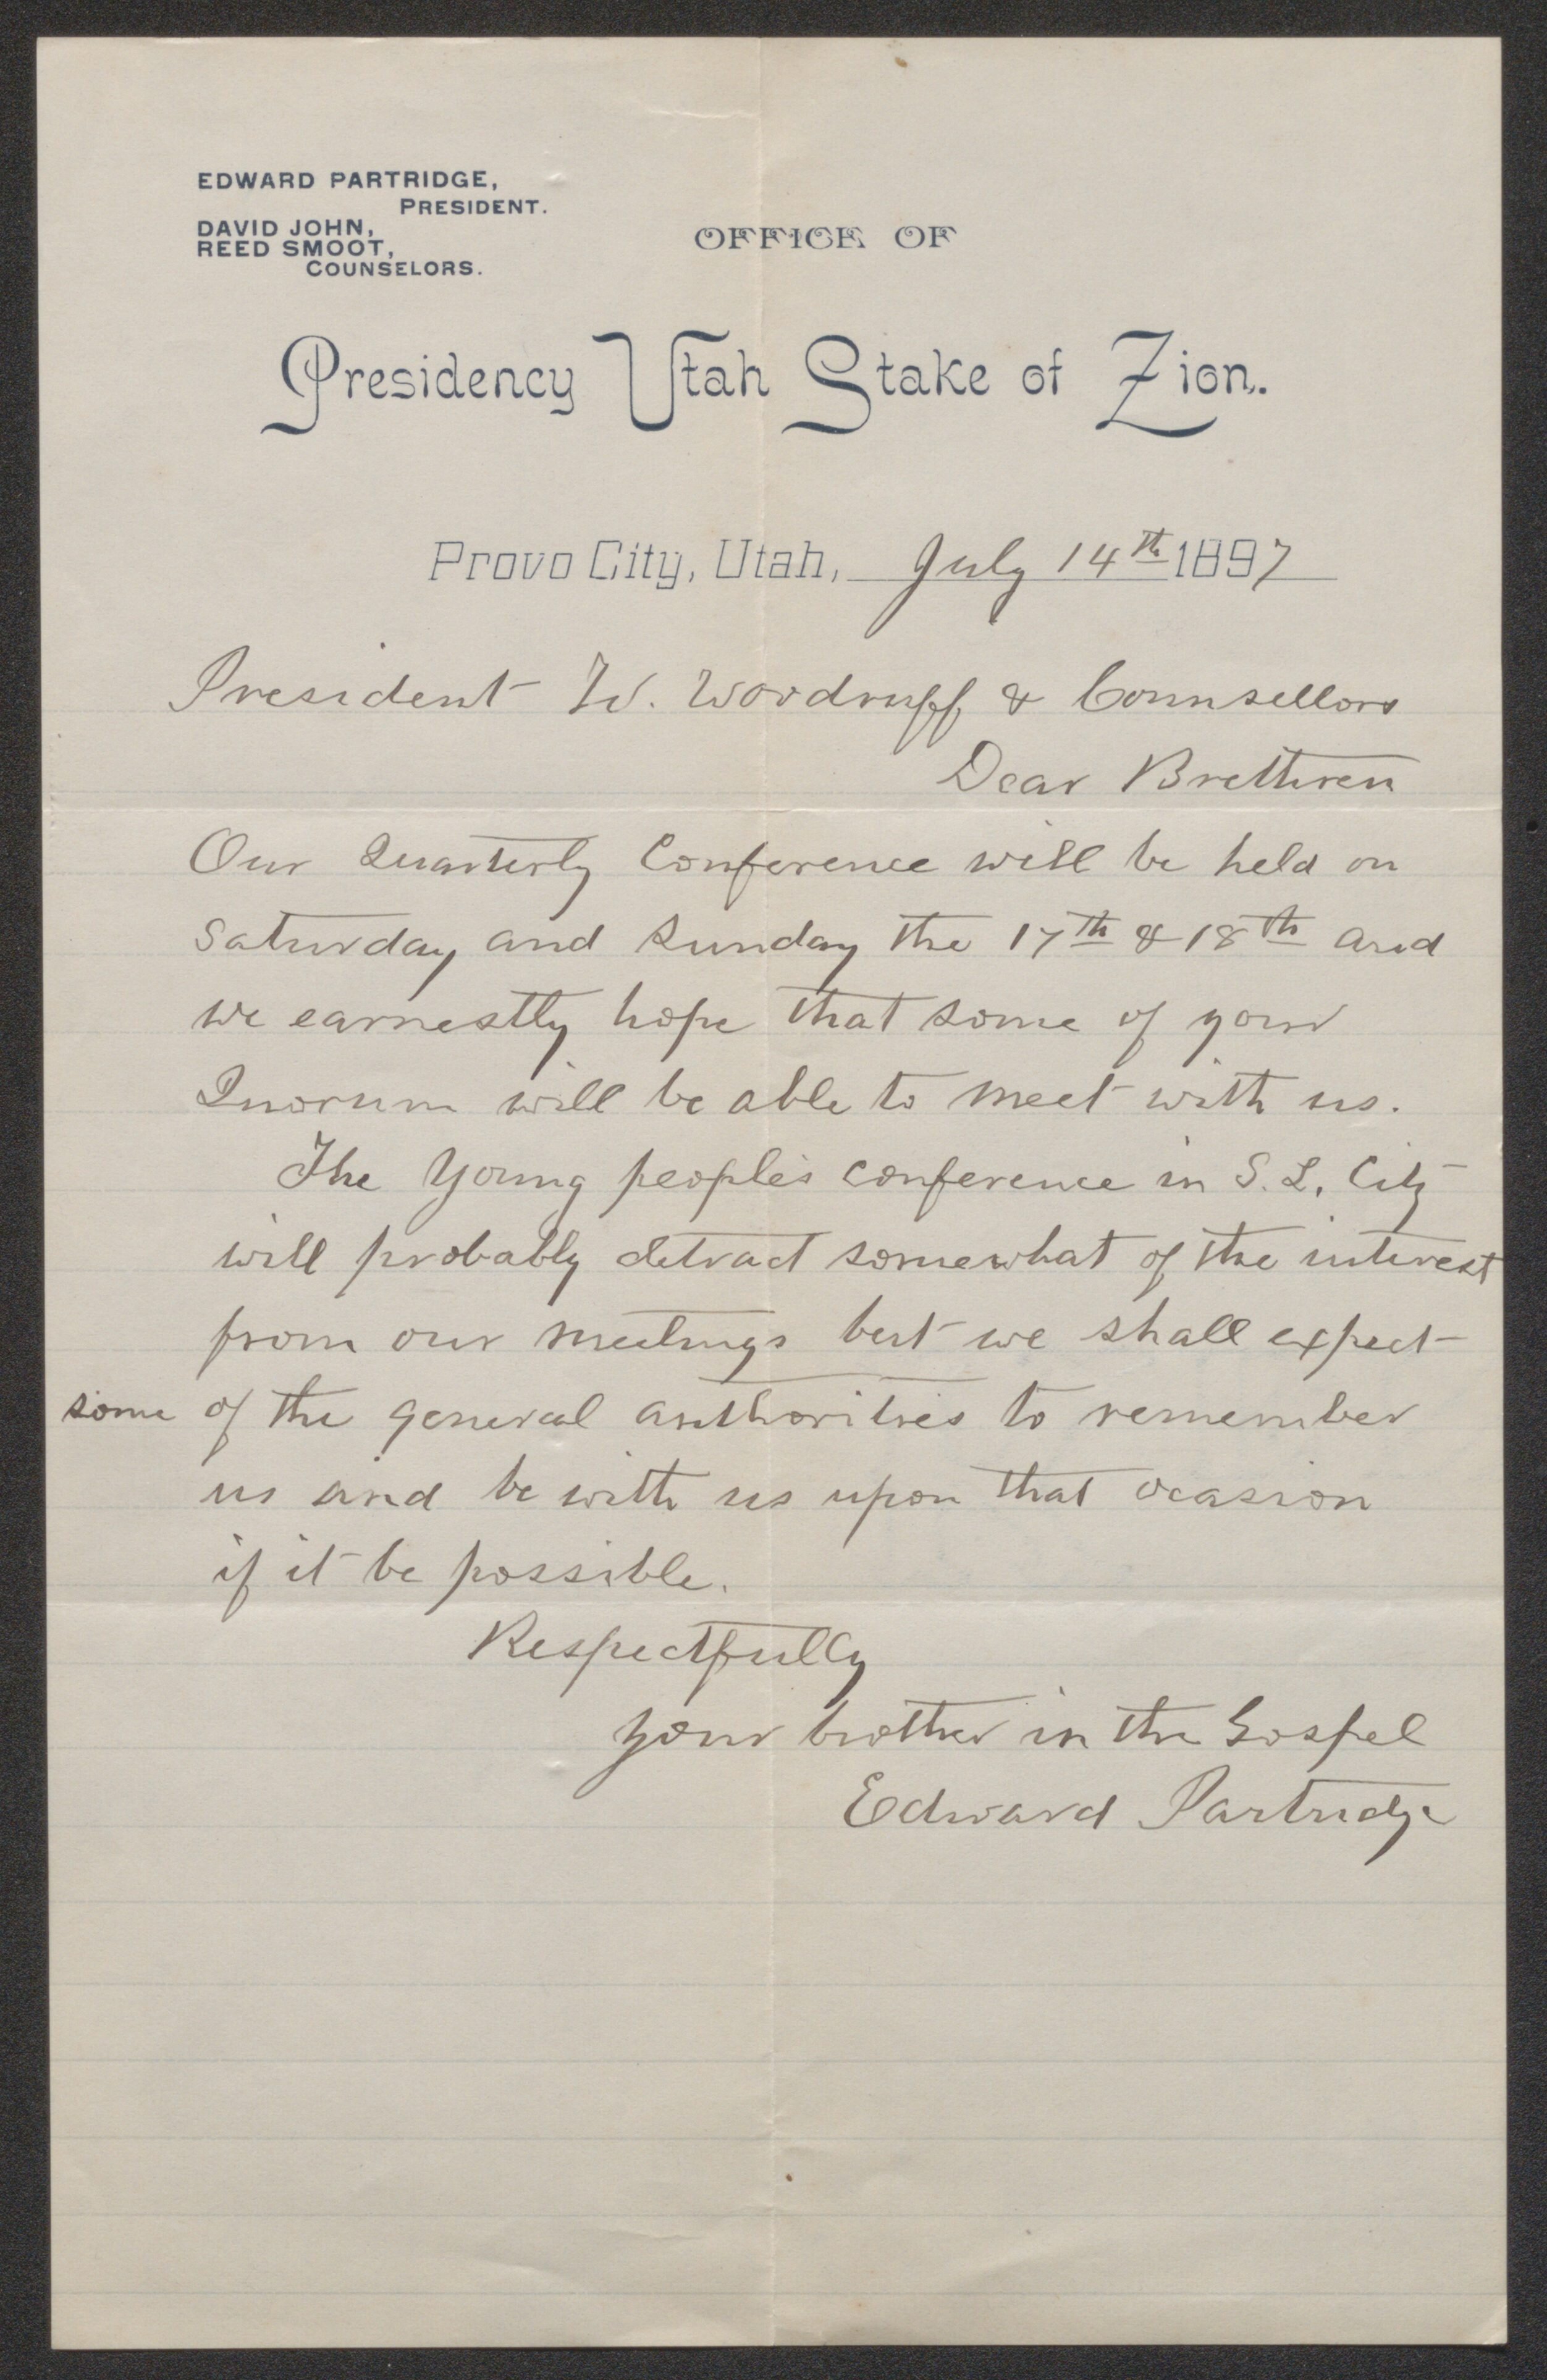 EDWARD PARTRIDGE,
PRESIDENT.
DAVID JOHN,
REED SMOOT,
COUNSELORS.
OFFICE OF
Presidency Utah Stake of Zion.
Provo City, Utah, July 14th 1897
President W. Woodruff & Counsellors
Dear Brethren
Our Quarterly Conference will be held on
Saturday and Sunday the 17th & 18th and
we earnestly hope that some of your
Quorum will be able to meet with us.
The Young people's conference in S. L. City
will probably detract somewhat of the interest
from our meetings but we shall expect
some of the general authorities to remember
us and be with us upon that ocasion
if it be possible.
Respectfully
your brother in the Gospel
Edward Partridge